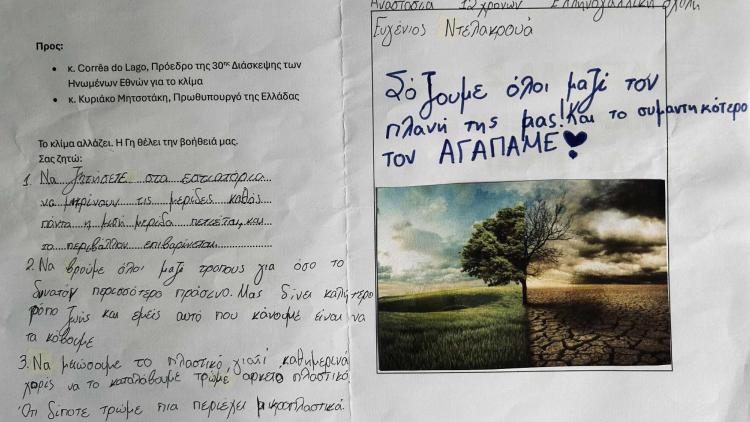 Προς:
• κ. Corrêa do Lago, Πρόεδρο της 30ης Διάσκεψης των
Ηνωμένων Εθνών για το κλίμα
• κ. Κυριάκο Μητσοτάκη, Πρωθυπουργό της Ελλάδας
Το κλίμα αλλάζει. Η Γη θέλει την βοήθειά μας.
Σας ζητώ:
1. Να ζητήσετε στα εστιατόρια
να μικρίνουν τις μερίδες καθώς
πάντα η μισή μερίδα πετιέται, και
το περιβάλλον επιβαρίνεται
2. Να βρούμε όλοι μαζί τρόπους για όσο το
δυνατόν περισσότερο πράσινο. Μας δίνει καλήτερο
τρόπο ζωής και εμείς αυτό που κάνουμε είναι να
τα κόβουμε
3. Να μειώσουμε το πλαστικό, γιατί καθημερινά
χωρίς να το καταλάβουμε τρώμε αρκετό πλαστικό
Ότι δίποτε τρώμε πια περιέχει μικροπλαστικά.
Αναστασία 12 χρονών Ελληνογαλλική σχολή
Ευγένιος Ντελακρουά
Σόζουμε όλοι μαζί τον
πλανή της μας! Και το σημαντικότερο
τον ΑΓΑΠΑΜΕ